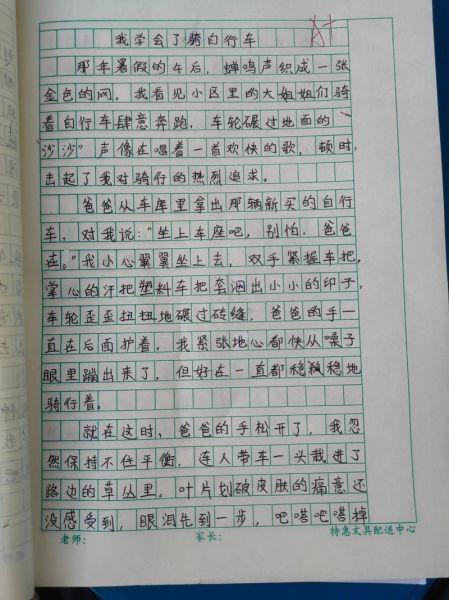 我学会了骑自行车 A+
那年暑假的午后，蝉鸣声织成一张
金色的网。我看见小区里的大姐姐们骑
着自行车肆意奔跑，车轮碾过地面的
“沙沙”声像在唱着一首欢快的歌，顿时，
击起了我对骑行的热烈追求。
爸爸从车库里拿出那辆新买的自行
车，对我说：“坐上车座吧，别怕，爸爸
在。”我小心翼翼坐上去，双手紧握车把，
掌心的汗把塑料车把套洇出小小的印子，
车轮歪歪扭扭地碾过砖缝，爸爸的手一
直在后面护着，我紧张地心都快从嗓子
眼里蹦出来了，但好在一直都稳稳地
骑行着。
就在这时，爸爸的手松开了，我忽
然保持不住平衡，连人带车一头栽进了
路边的草丛里。叶片划破皮肤的痛意还
没感受到，眼泪先到一步，吧嗒吧嗒掉
老师： 家长： 特惠文具配送中心